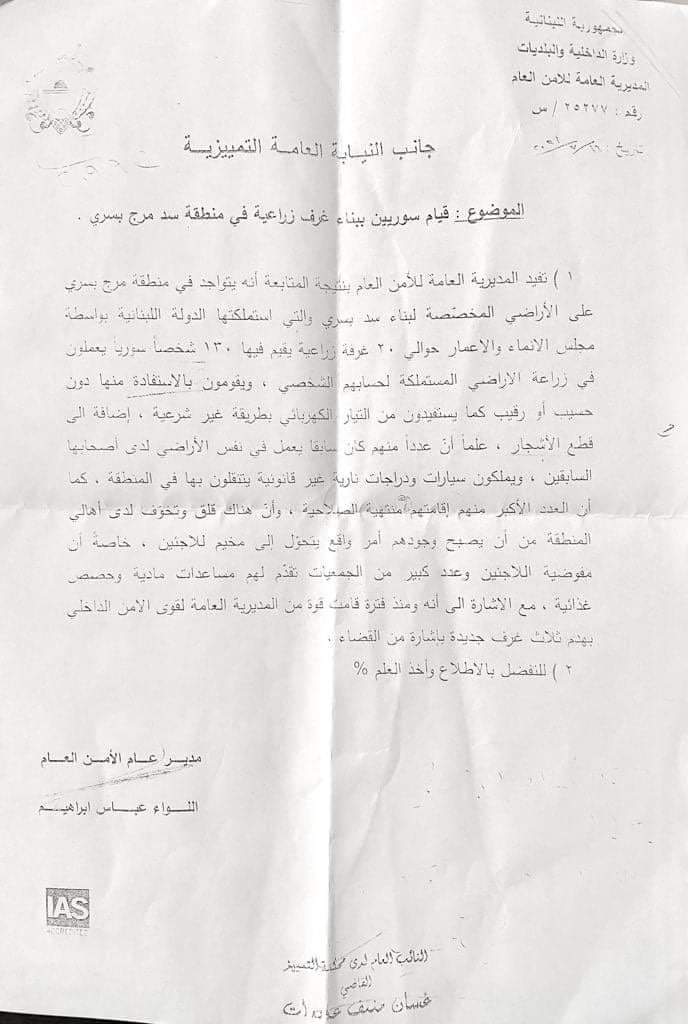 الجمهورية اللبنانية
وزارة الداخلية والبلديات
المديرية العامة للأمن العام
رقم : ٢٥٢٧٧ / س
تاريخ :
جانب النيابة العامة التمييزية
الموضوع : قيام سوريين ببناء غرف زراعية في منطقة سد مرج بسري .
١ ) تفيد المديرية العامة للأمن العام بنتيجة المتابعة أنه يتواجد في منطقة مرج بسري
على الأراضي المخصّصة لبناء سد بسري والتي استملكتها الدولة اللبنانية بواسطة
مجلس الانماء والاعمار حوالي ٢٠ غرفة زراعية يقيم فيها ١٣٠ شخصاً سورياً يعملون
في زراعة الاراضي المستملكة لحسابهم الشخصي ، ويقومون بالاستفادة منها دون
حسيب أو رقيب كما يستفيدون من التيار الكهربائي بطريقة غير شرعية ، إضافة الى
قطع الأشجار ، علماً أنّ عدداً منهم كان سابقا يعمل في نفس الأراضي لدى أصحابها
السابقين ، ويملكون سيارات ودراجات نارية غير قانونية يتنقلون بها في المنطقة ، كما
أن العدد الأكبر منهم إقامتهم منتهية الصلاحية ، وأنّ هناك قلق وتخوّف لدى أهالي
المنطقة من أن يصبح وجودهم أمر واقع يتحوّل إلى مخيم للاجئين ، خاصةً أن
مفوضية اللاجئين وعدد كبير من الجمعيات تقدّم لهم مساعدات مادية وحصص
غذائية ، مع الاشارة الى أنه ومنذ فترة قامت قوة من المديرية العامة لقوى الامن الداخلي
بهدم ثلاث غرف جديدة بإشارة من القضاء .
٢ ) للتفضل بالاطلاع وأخذ العلم %
مدير عام الأمن العام
اللواء عباس ابراهيم
IAS
ACCREDITED
النائب العام لدى محكمة التمييز
القاضي
غسان منيف عويدات